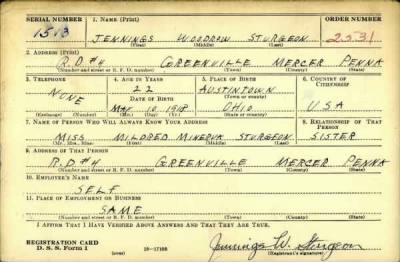 SERIAL NUMBER 1. NAME (Print) ORDER NUMBER
1513 JENNINGS WOODROW STURGEON 2531
(First) (Middle) (Last)
2. ADDRESS (Print)
R.D#4 GREENVILLE MERCER PENNA
(Number and street or R. F. D. number) (Town) (County) (State)
3. TELEPHONE 4. AGE IN YEARS 5. PLACE OF BIRTH 6. COUNTRY OF CITIZENSHIP
NONE 22 AUSTINTOWN USA
DATE OF BIRTH (Town or county)
MAY 10 1918 OHIO
(Exchange) (Number) (Mo.) (Day) (Yr.) (State or country)
7. NAME OF PERSON WHO WILL ALWAYS KNOW YOUR ADDRESS 8. RELATIONSHIP OF THAT PERSON
MISS MILDRED MINERVA STURGEON SISTER
(Mr., Mrs., Miss) (First) (Middle) (Last)
9. ADDRESS OF THAT PERSON
R.D#4 GREENVILLE MERCER PENNA
(Number and street or R. F. D. number) (Town) (County) (State)
10. EMPLOYER'S NAME
SELF
11. PLACE OF EMPLOYMENT OR BUSINESS
SAME
(Number and street or R. F. D. number) (Town) (County) (State)
I AFFIRM THAT I HAVE VERIFIED ABOVE ANSWERS AND THAT THEY ARE TRUE.
REGISTRATION CARD
D. S. S. Form 1 (over) 16—17105 Jennings W. Sturgeon
(Registrant's signature)